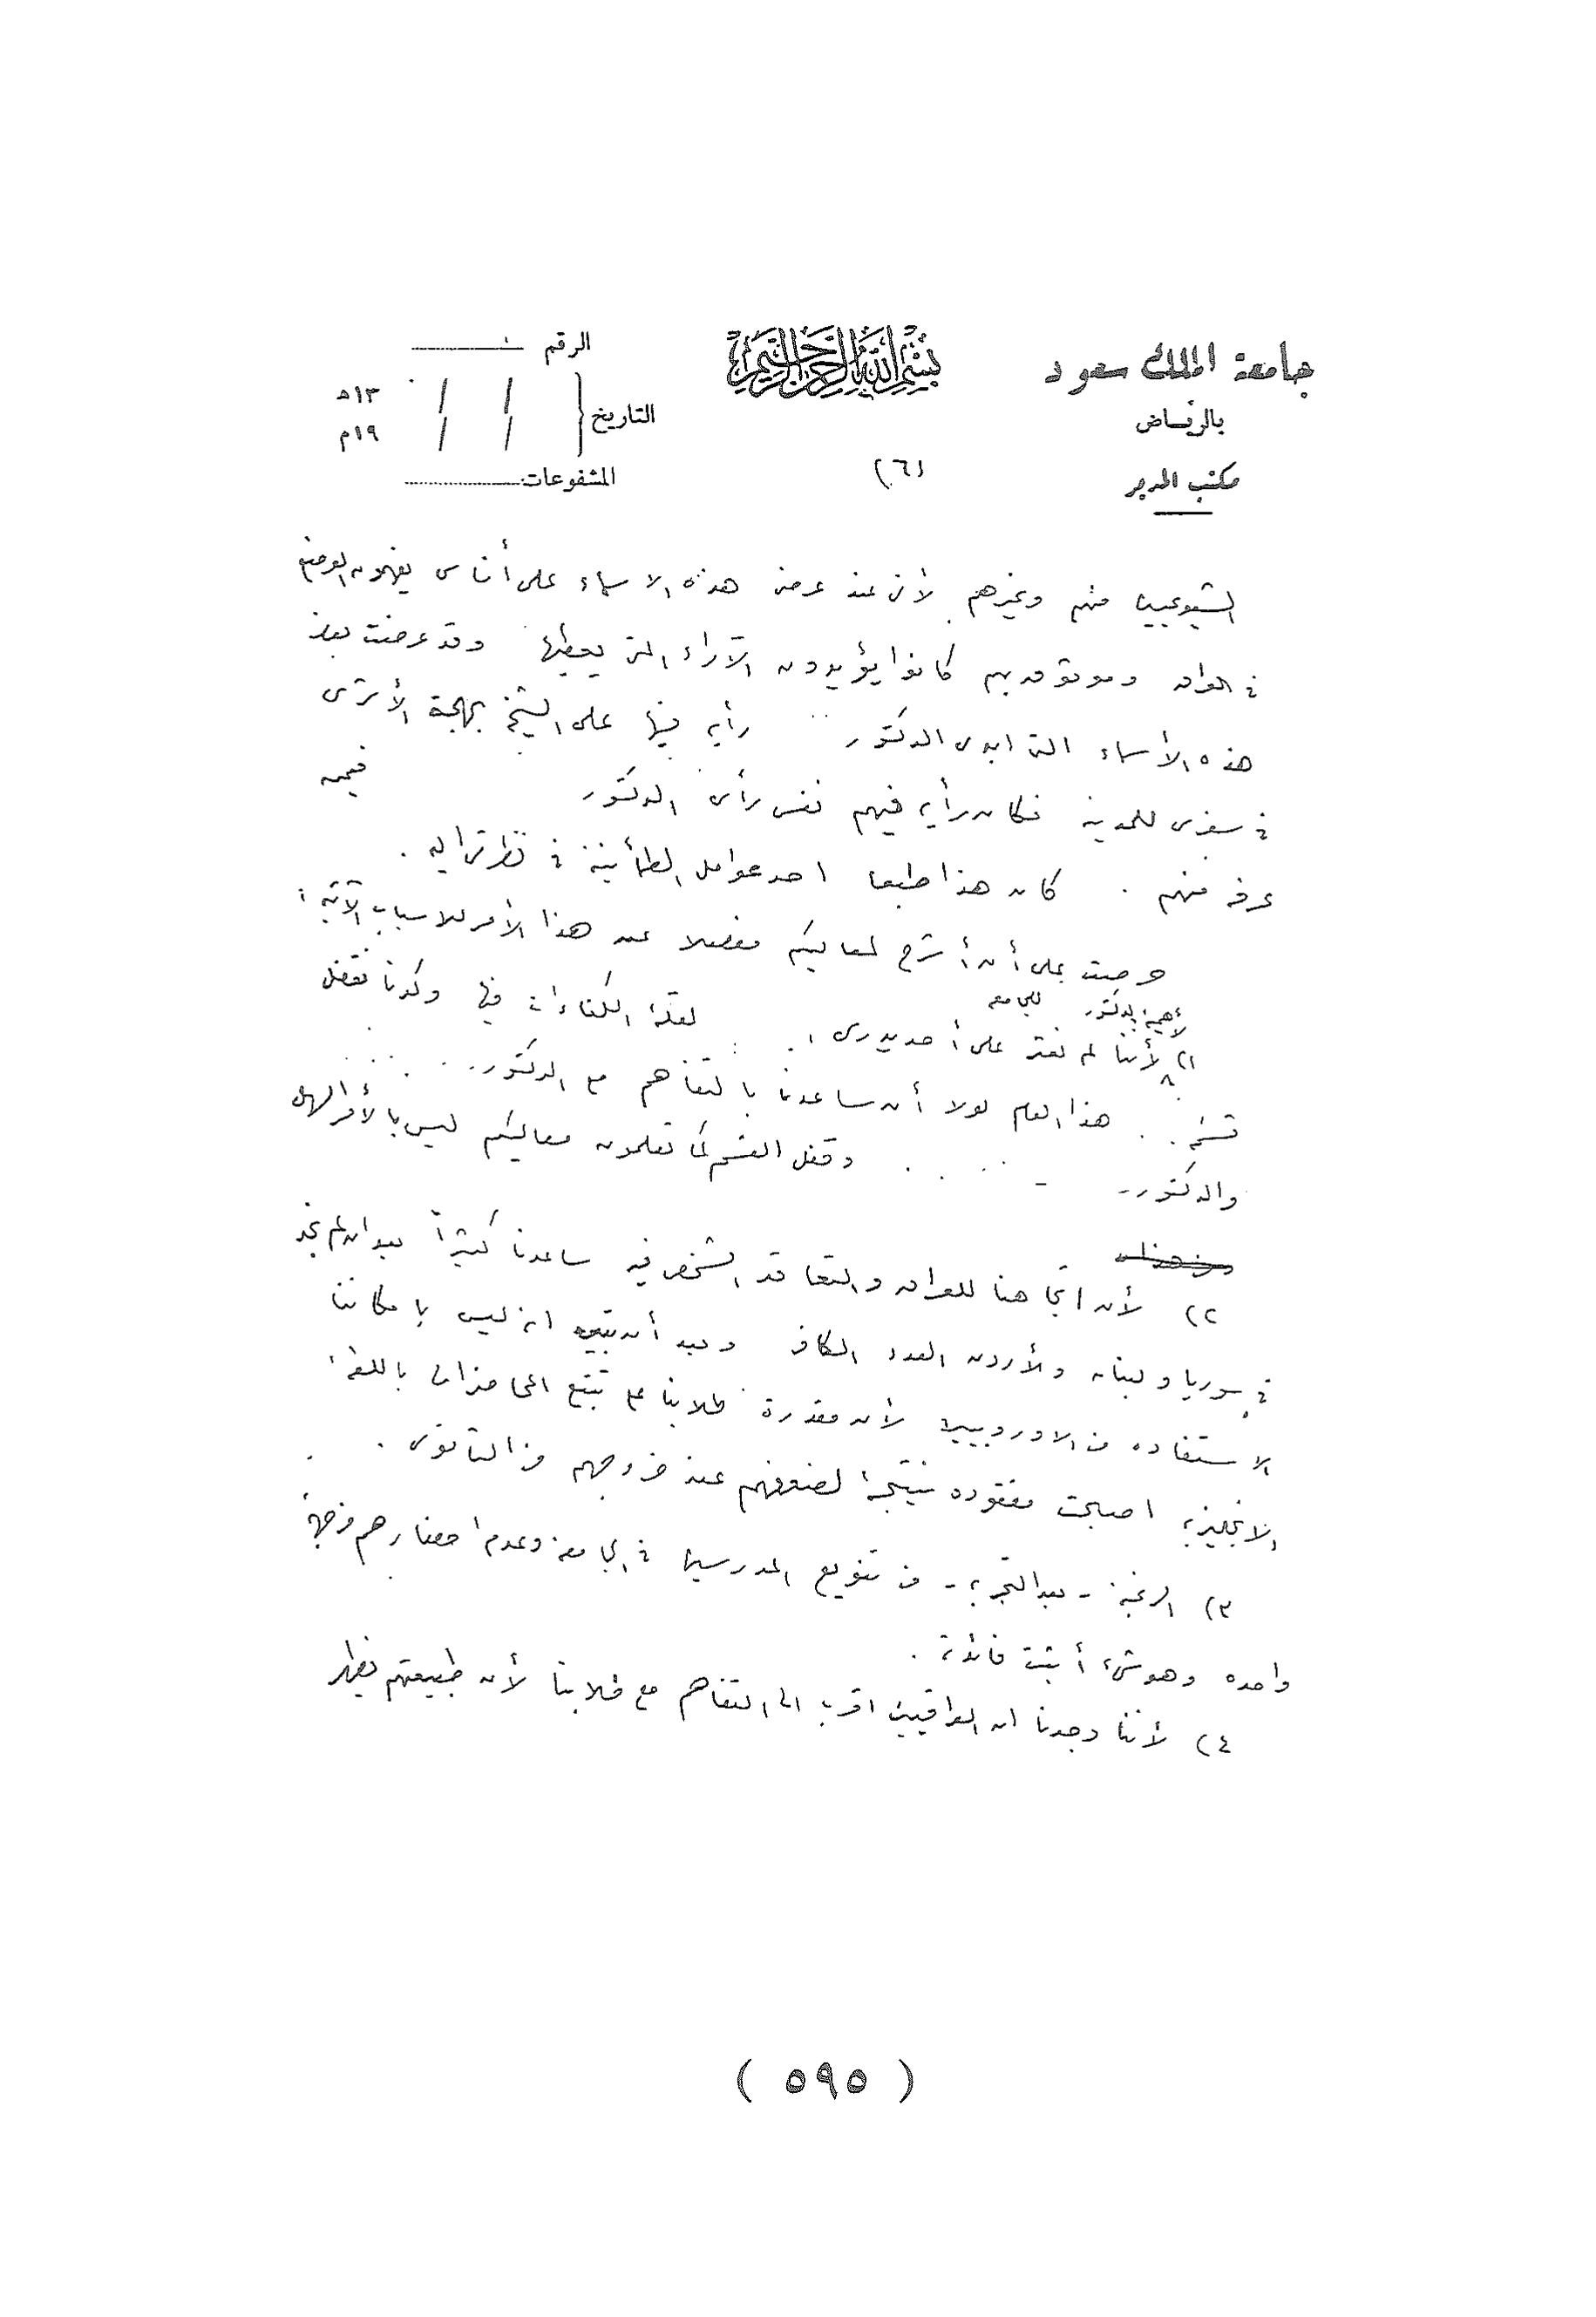 جامعة الملك سعود
بالرياض
مكتب المدير
بسم الله الرحمن الرحيم
(٦)
الرقم
التاريخ / / ١٣هـ
/ / ١٩م
المشفوعات
الشيوعيين منهم وغيرهم لأن عند عرض هذه الاسماء على أناس يفهمون الوضع
في العراق وموثوق بهم كانوا يؤيدون الآراء التي يعطيها وقد عرضت بعض
هذه الأسماء التي ابدى الدكتور رأيه فيها على الشيخ بهجة الأثرى
في سفرى للمدينة فكان رأيه فيهم نفس رأى الدكتور فيمن
عرفه منهم . كان هذا طبعا احد عوامل الطمأنينة في نظرتى اليه .
حرصت على أن أشرح لمعاليكم مفصلا عن هذا الأمر للاسباب الآتية :
لأهمية الدكتور للجامعه
١) لأننا لم نعثر على أحد يدرس لقلة الكفاءات فيها وكدنا نقفل
قسم هذا العام لولا أن ساعدنا بالتفاهم مع الدكتور
والدكتور وقفل القسم كما تعلمون معاليكم ليس بالأمر السهل
٢) لأن اتجاهنا للعراق والتعاقد الشخصى فيه ساعدنا كثيراً بعد ان لم نجد
في سوريا ولبنان والأردن العدد الكافى وبعد أن تبين انه ليس بامكاننا
الاستفاده من الاوروبيين لأن مقدرة طلابنا على تتبع المحاضرات باللغة
الانجليزية اصبحت مفقوده نتيجة لضعفهم عند خروجهم من الثانوى .
٣) الرغبة - بعد التجربة - من تنويع المدرسين في الجامعة وعدم احضارهم من جهة
واحده وهو شىء أثبت فائدته .
٤) لأننا وجدنا ان العراقيين اقرب الى التفاهم مع طلابنا لأن طبيعتهم نظر
( ٥٩٥ )